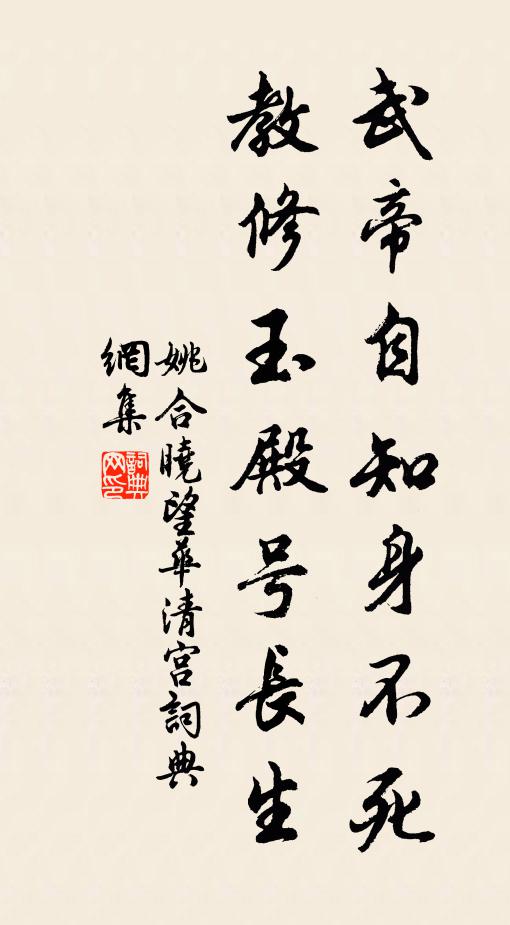 武帝自知身不死
教修玉殿号長生
姚合曉望華清宮詞典
網集
詞典
网印